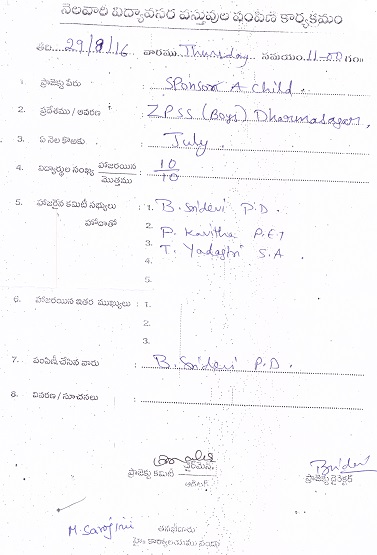 నెలవారి విద్యావసర వస్తువుల పంపిణి కార్యక్రమం
తేది. 29/9/16 వారము. Thursday సమయం. 11-00 గం॥
1. ప్రాజెక్టు పేరు : Sponsor A Child.
2. ప్రదేశము / ఆవరణ : ZPSS (Boys) Dharmasagar,
3. ఏ నెల కొఱకు : July.
4. విద్యార్థుల సంఖ్య హాజరయిన / మొత్తము : 10/10
5. హాజరైన కమిటీ సభ్యులు : 1. B. Sridevi P.D.
హోదాతో 2. P. Kavitha P.E.T
3. T. Yadagiri S.A.
4.
5.
6. హాజరయిన ఇతర ముఖ్యులు : 1.
2.
3.
7. పంపిణీ చేసిన వారు : B. Sridevi P.D.
8. వివరణ / సూచనలు :
ప్రాజెక్టు కమిటి చైర్మెన్
Bridevi
ప్రాజెక్టు డైరెక్టర్
M. Sarojini